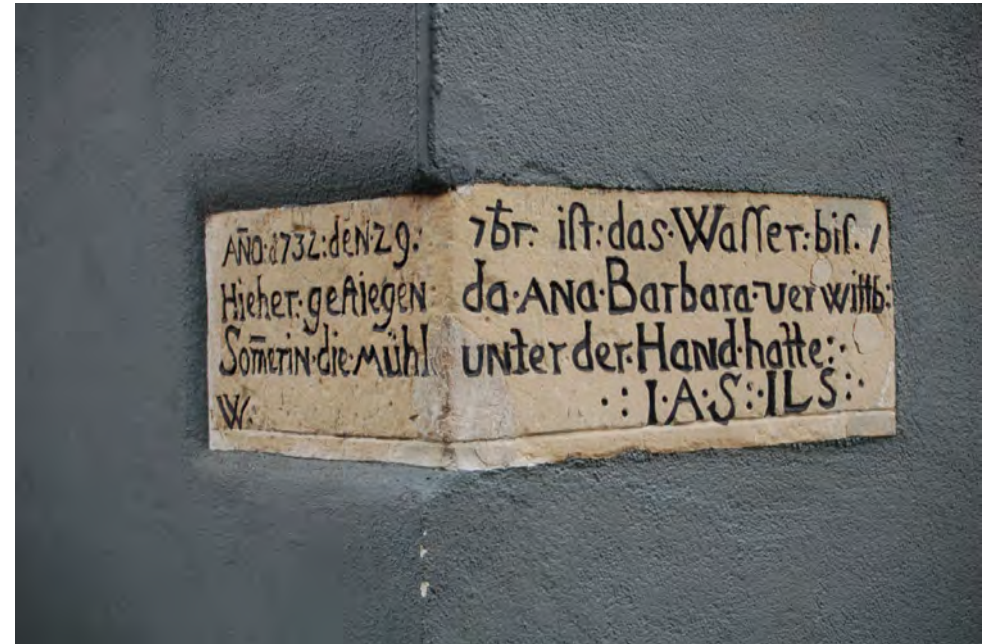 AÑO·1732:deN·29: 7br. iſt:das·Waſſer:biſ. /
Hieher:geſtiegen: da·ANa·Barbara·verwittb:
Som̄erin·die·Mühl uNter der:HaNd·hatte:·
W: ·:I·A·S:·ILS:·